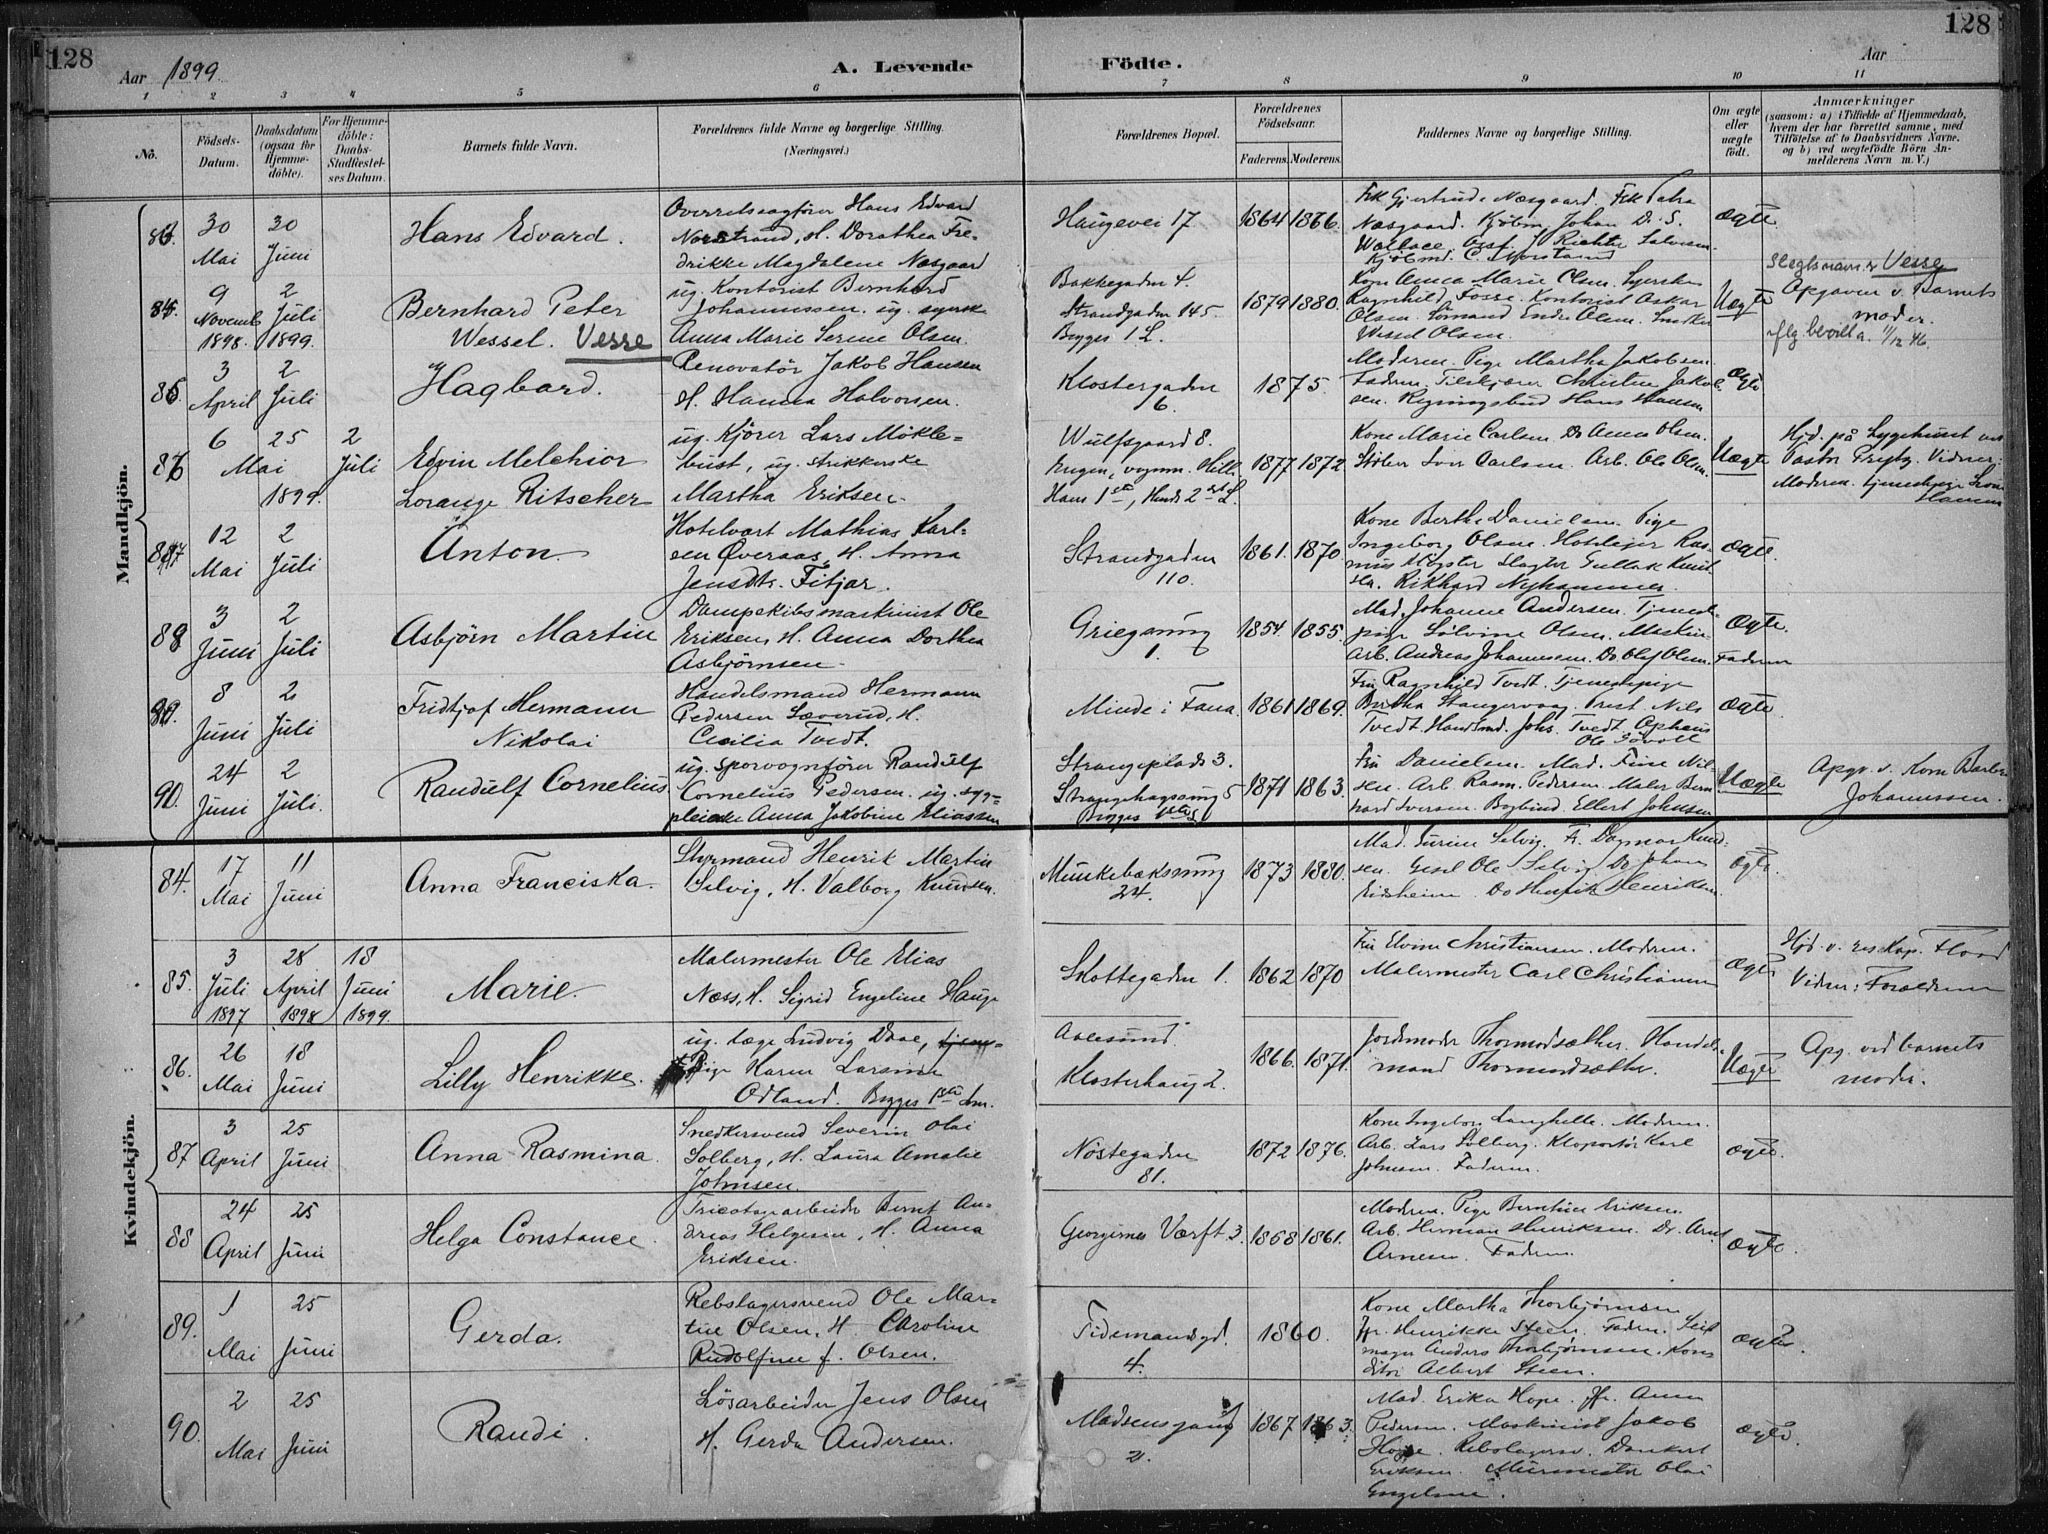 128
Aar 1899.
A. Levende Födte.
Aar
128
1 2 3 4 5 6 7 8 9 10 11
No.
Födsels-Datum.
Daabsdatum (ogsaa for Hjemme-döbte).
For Hjemme-döbte: Daabs-Stadfæstel-ses Datum.
Barnets fulde Navn.
Forældrenes fulde Navne og borgerlige Stilling. (Næringsvei.)
Forældrenes Bopæl.
Forældrenes Födselsaar.
Faderens. Moderens.
Faddernes Navne og borgerlige Stilling.
Om ægte eller uægte födt.
Anmærkninger
(saasom: a) i Tilfælde af Hjemmedaab, hvem der har forrettet samme, med Tilföielse af to Daabsvidners Navne, og b) ved uægtefödte Börn An-melderens Navn m. V.)
Mandkjön.
30 Mai
30 Juni
Hans Edvard.
Overretssagfører Hans Edvard
Norstrand, H. Dorothea Fre-
drikke Magdalene Næsgaard
Haugevei 17
1864 1866.
Frk Gjertrude Næsgaard. Frk Petra
Næsgaard. Kjöbm. Johan D. S.
Wallace.
ægte
9 Novemb. 1898.
2 Juli 1899.
Bernhard Peter
Wessel. Vesse
ug. Kontorist Bernhard
Johannessen. ug. syerske
Anna Marie Serine Olsen.
Bakkegaden 4.
Strandgaden 145.
Begges 1 L.
1879 1880.
Kone Anna Marie Olsen. Syerske
Ragnhild Fosse. Kontorist Askar
Olsen. Sömand Endre Olsen. Snekker
Wessel Olsen.
Uægte
Slegtsnavn er Vesse
Opgaven v. Barnets
moder.
iflg. bevill. a. 11/12 46.
3 April
2 Juli
Hagbard.
Renovatör Jakob Hansen
H. Hanna Halvorsen.
Klostergaden
6.
1875.
Moderen. Pige Martha Jakobsen
Faderen. Christen Jakob-
sen. Regningsbud Hans Hansen
ægte
6 Mai 1899.
25
2 Juli
Edvin Melchior
Lorange Ritscher
ug. Kjører Lars Mökle-
bust, ug. strikkerske
Martha Eriksen.
Wulfsgaard 8.
Hans 1ste, Hendes 2det L.
1877 1872.
Kone Marie Carlsen. Do Anna Olsen.
Støber Iver Carlsen. Arb. Ole Olsen.
Uægte
Hjd. på Sygehuset ved
Pastor Vidner:
Moderen. Tjenestepige
Hansen
12 Mai
2 Juli
Anton
Hotelvært Mathias Karl-
sen Øveraas, H. Anna
Jensdtr. Fitjar.
Strandgaden
110.
1861. 1870.
Kone Berthe Danielsen. Pige
Ingeborg Olsen. Hoteleier Ras-
mus Slagter Gullak Knut-
sen. Rikhard Nyhammer.
ægte.
88
3 Juni
2 Juli
Asbjörn Martin
Dampskibsmaskinist Ole
Eriksen, H. Anna Dorthea
Asbjörnsen.
Griegsmug
1.
1854. 1855.
Mad. Johanne Andersen. Tjeneste-
pige Sölvine Olsen. Maskin-
Arb. Andreas Johannesen. Do Olaf Olsen. Faderen
Ægte.
8 Juni
2 Juli
Fridtjof Hermann
Nikolai
Handelsmand Hermann
Pedersen Sæverud, H.
Cecilia Tvedt.
Minde i Fana.
1861 1869.
Fru Ragnhild Tvedt. Tjenestepige
Bertha Stangervaag. Nils
Tvedt. Handlsmd. Johs. Tvedt.
ægte
90.
24 Juni
2 Juli.
Randulf Cornelius
ug. sporvognfører Randulf
Cornelius Pedersen. ug. syg-
pleierske Anna Jakobine Eliassen
Strangeplads 3.
Strangehagsmug 5
Begges 1ste L
1871 1863.
Fru Danielsen. Mad. Fine Nil-
sen. Arb. Rasm. Pedersen. Maler Bern-
hard Iversen. Bogbind. Ellert Johnsen
Uægte
Opgv. v. Kone Barbra
Johannessen.
Kvindekjön.
84.
17 Mai
11 Juni
Anna Franciska.
Styrmand Henrik Martin
Selvig, H. Valborg Knudsen.
Munkebæksmug
24.
1873 1880.
Mad. Surine Selvig. Fr. Dagmar Knud-
sen. Gesel Ole Selvig. Do Johan
Do Henrik Henriksen
ægte.
85.
3 Juli 1897
28 April 1898
18 Juni 1899.
Marie.
Malermester Ole Elias
Næss, H. Sigrid Engeline Hauge
Skottegaden 1.
1862 1870
Fru Elvine Christiansen. Moderen.
Malermester Carl Christiansen
ægte
Hjd. v. res. Kap. Flood
Vidner: Forældrene
86.
26 Mai
18 Juni
Lilly Henrikke.
ug. læge Ludvig Daae,
Pige Karen Larsine
Odland. Begges 1ste Lm.
Aalesund.
Klosterhaug 2.
1866. 1871.
Jordmoder Thormodsæther. Handels-
mand Thormodsæther.
Uægte
Opg. ved barnets
moder.
87.
3 April
25 Juni
Anna Rasmina.
Snedkersvend Severin Olai
Solberg, H. Laura Amalie
Johnsen.
Nöstegaden
81.
1872 1876.
Kone Ingeborg Langhelle. Moderen.
Arb. Lars Solberg. Kloportör Karl
Johnsen. Faderen.
ægte.
88
24 April
25 Juni
Helga Constance.
Tricotagearbeider Bernt An-
dreas Helgesen, H. Anna
Eriksen.
Georgernes Værft 3.
1858 1861.
Moderen. Pige Berntine Eriksen.
Arb. Herman Henriksen. Do. Arne
Arnesen. Faderen.
ægte.
89.
1 Mai
25 Juni
Gerda.
Rebslagersvend Ole Mar-
tin Olsen. H. Caroline
Rudolfine f. Olsen.
Tidemandsgd.
4.
1860.
Kone Martha Thorbjørnsen
Jfr. Henrikke Steen. Faderen. Seil-
mager Anders Thorbjørnsen. Kon-
ditor Albert Steen.
ægte.
90.
2 Mai
25 Juni
Randi.
Lösarbeider Jens Olsen
H. Gerda Andersen.
Madsensgang
2.
1867 1863.
Mad. Erika Hope. Jfr. Anna
Pedersen. Maskinist Jakob
Hope. Rebslagersv. Dankert
Eriksen. Murmester Olai
Engelsen.
ægte.